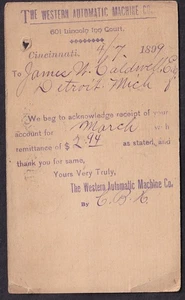 THE WESTERN AUTOMATIC MACHINE CO.
601 Lincoln Inn Court.
Cincinnati, 4/7 1899
To James W. Caldwell,
Detroit Mich
We beg to acknowledge receipt of your
account for March with
remittance of $2.94 as stated, and
thank you for same,
Yours Very Truly,
The Western Automatic Machine Co.
By